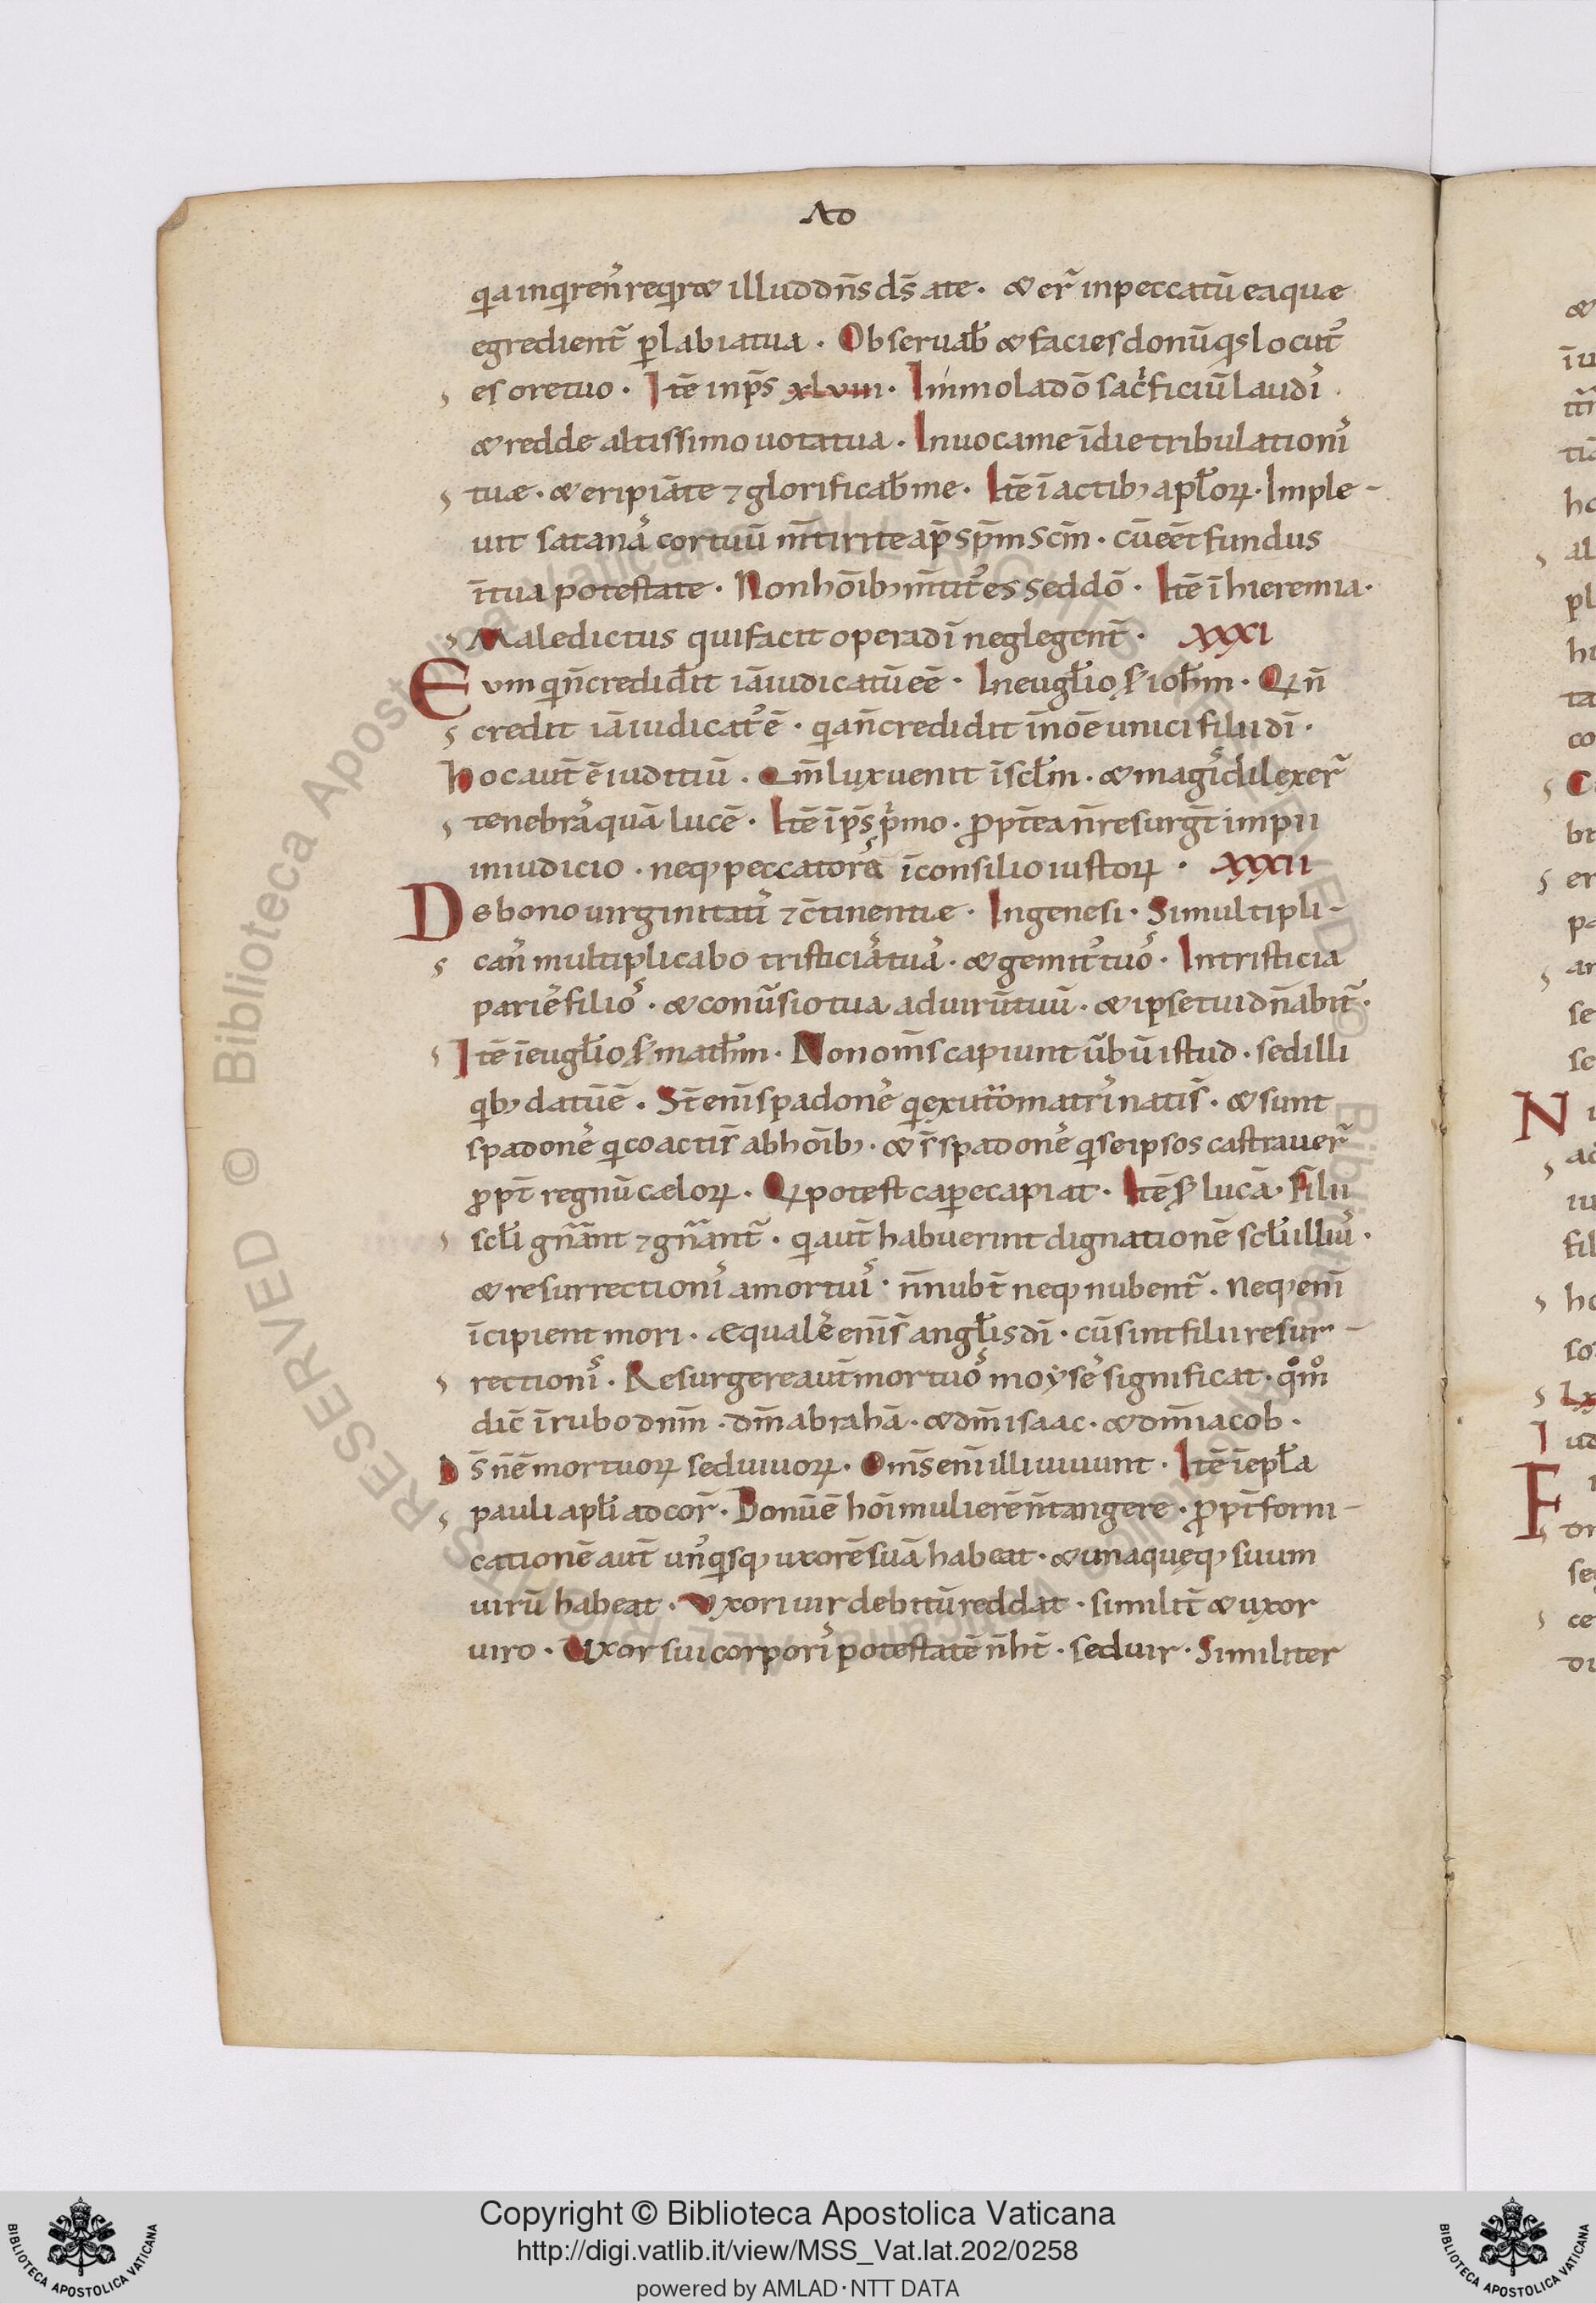 Ad
qia inqiren̄s reqiret illud dn̄s ds̄ ate · & er̄ inpeccatū eaquae
egredient̄ ꝑ labia tua · Obseruab̄ & facies donū qs locut᾽
es oretuo · Itē inps̄ xlviii · Immola dō sac̄ficiū laudi᾽ ·
& redde altissimo uota tua · Inuoca me ī die tribulationi᾽
tuæ · & eripiā te ⁊ glorificab̄ me · Itē ī actib; apl̄oꝝ · Imple-
uit satana᾽ cor tuū m̄tiri te ap̄ sp̄m scm̄ · cū eēt fundus
ī tua potestate · Non hōib; m̄tit᾽ es sed dō · Itē ī hieremia ·
Maledictus qui facit opera dī neglegent̄ · XXXI
Eum qi n̄ credid̄it iā iudicatū eē · In eugl̄io s̄ ioh̄m · Qi n̄
credit iā iudicat᾽ ē · qia n̄ credidit ī noē unici filii dī ·
hoc aut̄ ē iuditiū · Qm̄ lux uenit ī scl̄m · & magi᾽ dilexer̄
tenebra᾽ quā lucē · Itē ī ps̄ p̄mo · ꝓpt̄ea n̄ resurgt̄ impii
in iudicio · neq; peccatore᾽ ī consilio iustoꝝ · XXXII
De bono uirginitati᾽ ⁊ c̄tinentiæ · In genesi · Si multipli-
can᾽ multiplicabo tristicia᾽ tua᾽ · & gemit᾽ tuo᾽ · In tristicia
parie᾽ filio᾽ · & conūsio tua ad uirū tuū · & ipse tui dn̄abit̄ ·
Itē ī eugl̄io s̄ math̄m · Non oms̄ capiunt ūbū istud · sed illi
qib; datū ē · St̄ eni᾽ spadone᾽ qi ex ut̄o matri᾽ nati s̄ · & sunt
spadone᾽ qi coacti s̄ ab hōib; · & s̄ spadone᾽ qi se ipsos castrauer̄
ꝓpt̄ regnū cæloꝝ · Qi potest caꝑe capiat · Itē s̄ lucā · Filii
scl̄i gn̄ant ⁊ gn̄ant̄ · qi aut̄ habuerint dignationē scl̄i illiu᾽ ·
& resurrectioni᾽ a mortui᾽ · n̄ nubt̄ neq; nubent̄ · Neq; eni᾽
īcipient mori · Æquale᾽ eni᾽ s̄ angl̄is dī · cū sint filii resur-
rectioni᾽ · Resurgere aut̄ mortuo᾽ moyse᾽ significat · qo mo
dic̄ ī rubo dnm̄ · dm̄ abrahā · & dm̄ isaac · & dm̄ iacob ·
Ds̄ n̄ ē mortuoꝝ sed uiuoꝝ · Oms̄ eni᾽ illi uiuunt · Itē ī epl̄a
pauli apl̄i ad cor̄ · Bonū ē hōi mulierē n̄ tangere · ꝓpt̄ forni-
cationē aut̄ un᾽ qisq; uxorē suā habeat · & unaquęq; suum
uirū habeat · Vxori uir debitū reddat · similit̄ & uxor
uiro · Uxor sui corpori᾽ potestatē n̄ ht̄ · sed uir · Similiter
Copyright © Biblioteca Apostolica Vaticana
http://digi.vatlib.it/view/MSS_Vat.lat.202/0258
powered by AMLAD·NTT DATA